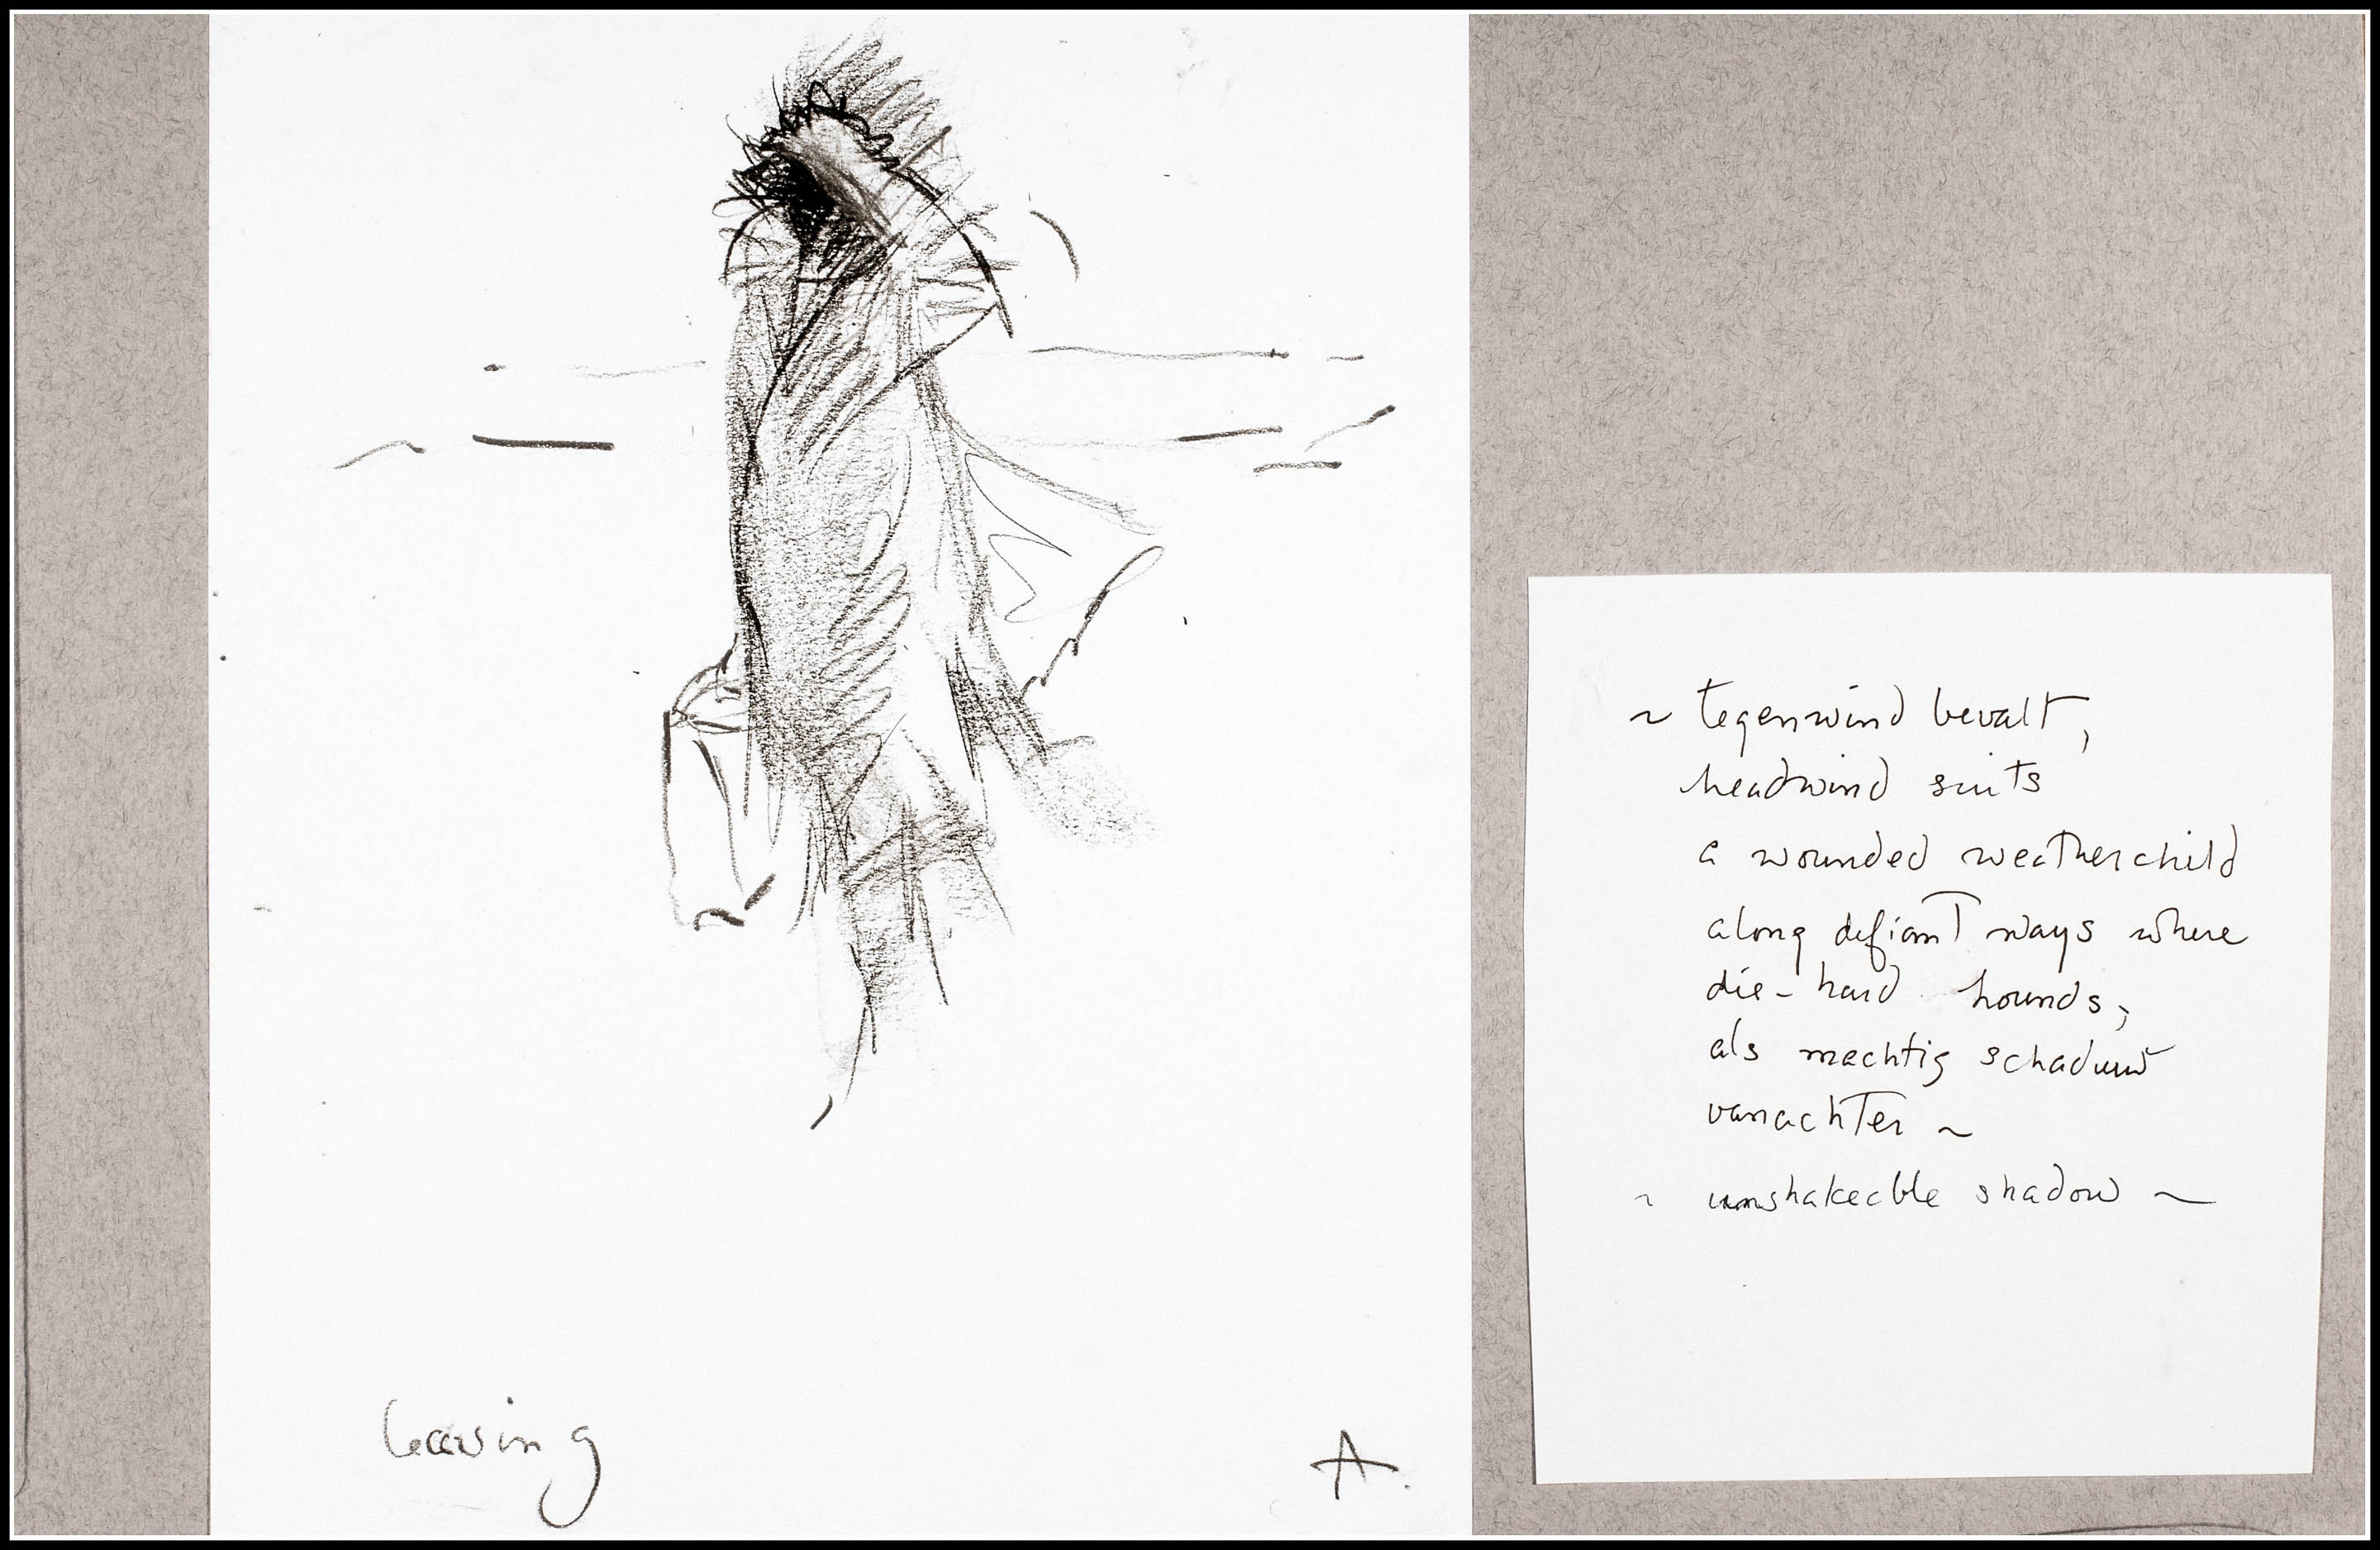 leaving
A.
~ tegenwind bevalt,
headwind suits
a wounded weatherchild
along defiant ways where
die-hard hounds,
als machtig schaduw
vanachter ~
~ unshakeable shadow ~